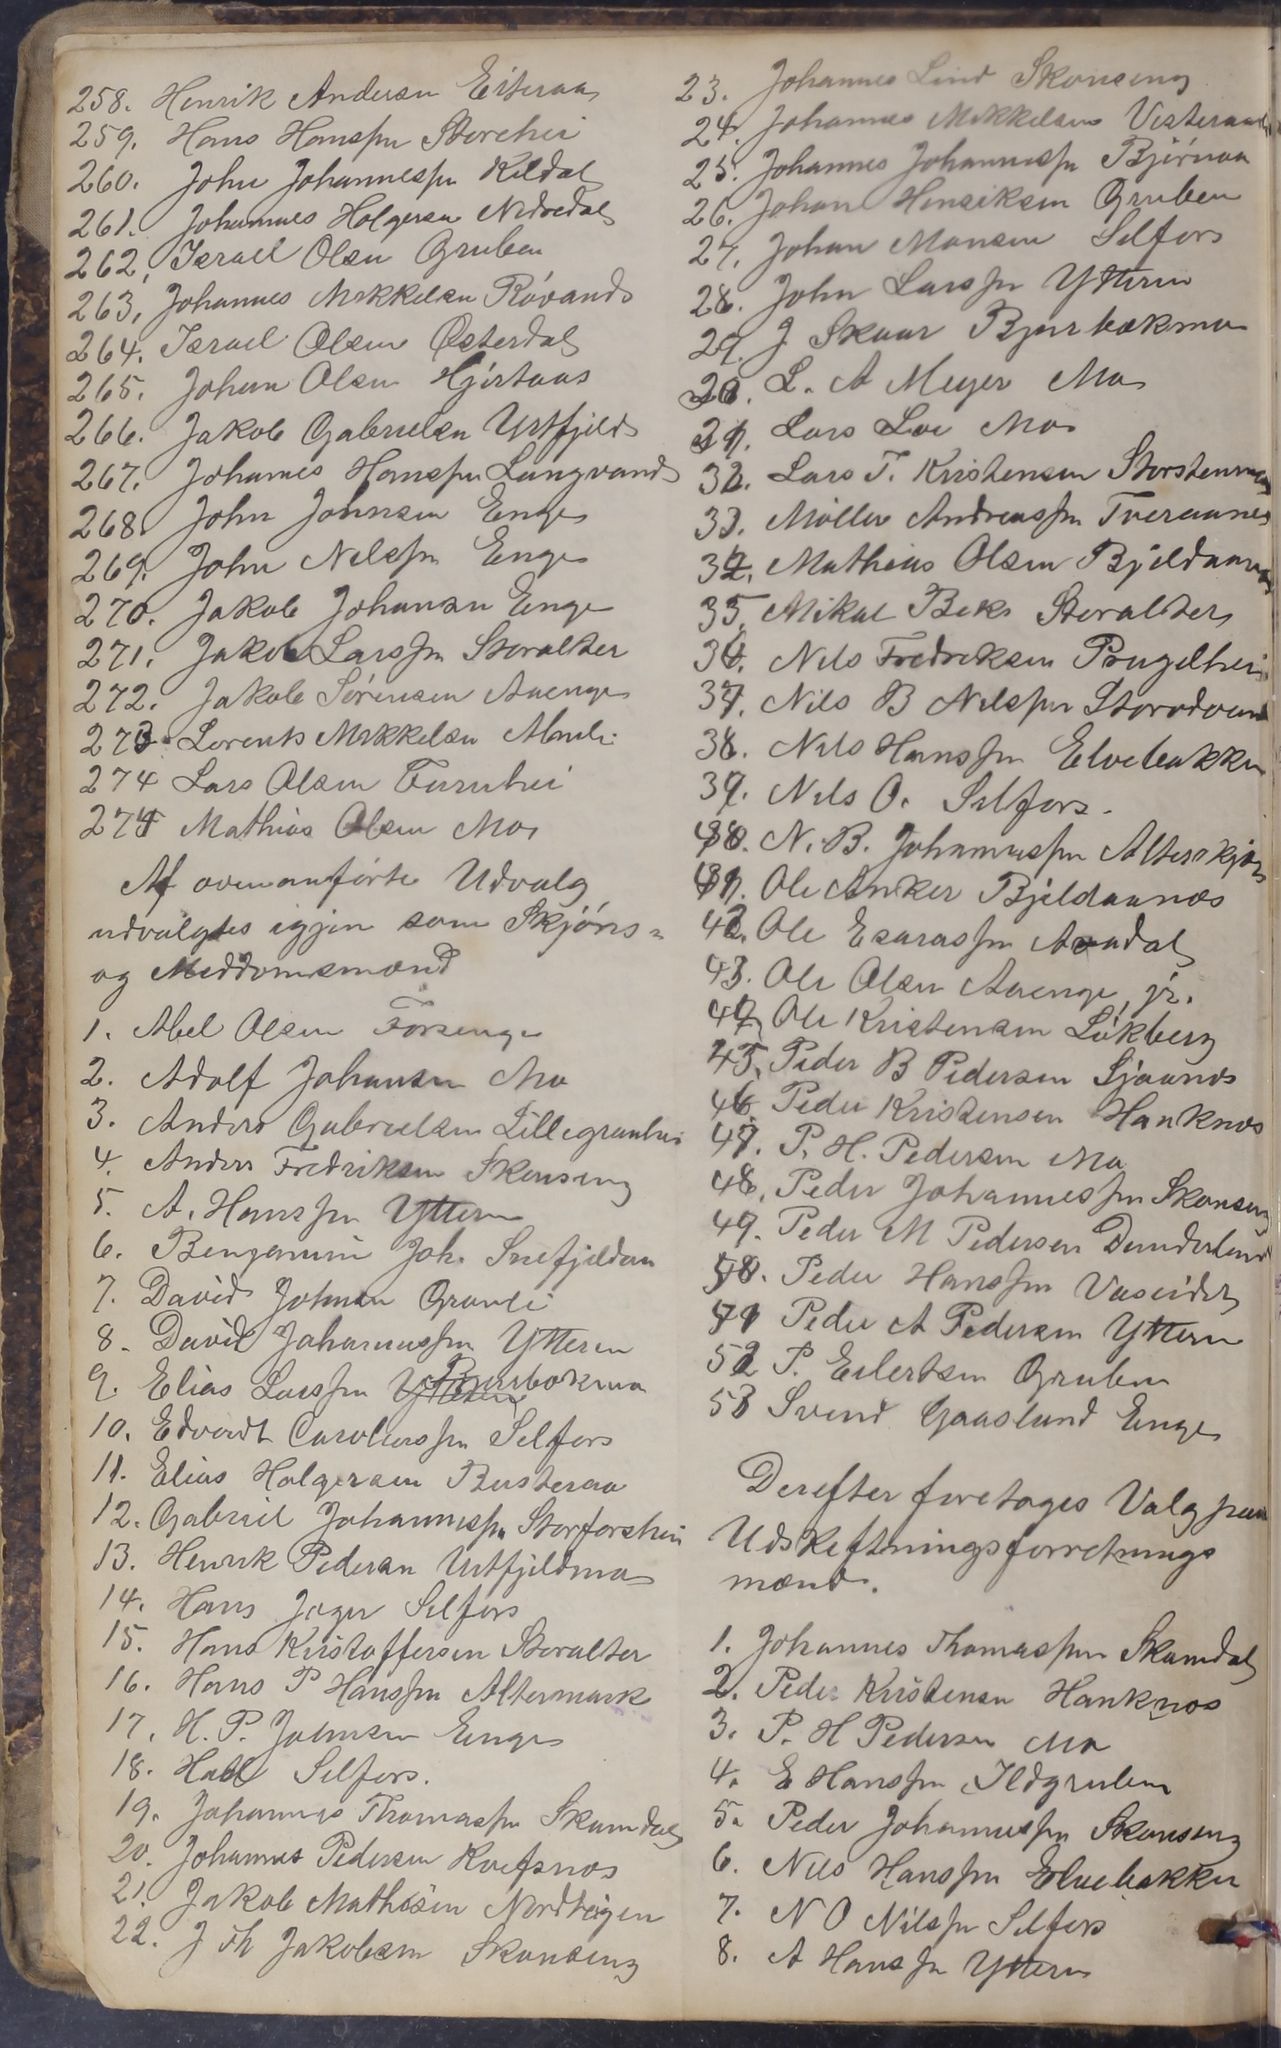 258. Henrik Andersen Eiteraa
259. Hans Hanssen Storhei
260. John Johannessen Kildal
261. Johannes Holgersen Nedredal
262. Israel Olsen Gruben
263. Johannes Mikkelsen Røvand
264. Israel Olsen Østerdal
265. Johan Olsen Hjertaas
266. Jakob Gabrielsen Urtfjeld
267. Johannes Hanssen Langvand
268. John Johnsen Enge
269. John Nilssen Enge
270. Jakob Johansen Enge
271. Jakob Larssen Storalter
272. Jakob Sørensen Aaenge
273. Lorents Mikkelsen
274 Lars Olsen Furuhei
275 Mathias Olsen Mo
Af ovenanførte Udvalg
udvalgtes igjen som Skjøns-
og Meddomsmænd
1. Abel Olsen Forsenge
2. Adolf Johansen Mo
3. Anders Gabrielsen Lillegranhei
4. Anders Fredriksen Skonseng
5. A. Hanssen Ytteren
6. Benjamin Joh. Snefjeldaa
7. David Johnsen Granli
8. David Johannessen Ytteren
9. Elias Larssen Ytteren Bjurbækmo
10. Edvardt Caroliussen Selfors
11. Elias Holgersen Busteraa
12. Gabriel Johannessen Storforshei
13. Henrik Pedersen Urtfjeldmo
14. Hans Jæger Selfors
15. Hans Kristoffersen Storalter
16. Hans P Hanssen Altermark
17. H. P. Johnsen Enge
18. Hall Selfors.
19. Johannes Thomassen Skamdal
20. Johannes Pedersen Kvefsnos
21. Jakob Mathisen Nordheigen
22. J Th Jakobsen Skonseng
23. Johannes Lind Skonseng
24. Johannes Mikkelsen Vesteraali
25. Johannes Johannessen Bjørnaa
26. Johan Henriksen Gruben
27. Johan Monsen Selfors
28. John Larssen Ytteren
29. J Skaar Bjurbækmo
30. L. A Meyer Mo
31. Lars Loe Mo
32. Lars T. Kristensen Storstenmo
33. Møller Andreassen Tveraanes
34. Mathias Olsen Bjeldaanes
35. Mikal Beks Storalter
36. Nils Fredriksen Prugelhei
37. Nils B Nilssen Storvand
38. Nils Hanssen Elvebakken
39. Nils O. Selfors.
40. N. B. Johannessen Alterskjær
41. Ole Anker Bjeldaanes
42. Ole Esaiassen Aadal
43. Ole Olsen Aaenge, jr.
44. Ole Kristensen Løkberg
45. Peder B Pedersen Sjaanes
46. Peder Kristensen Hauknes
47. P. H. Pedersen Mo
48. Peder Johannessen Skonseng
49. Peder M Pedersen Dunderland
50. Peder Hanssen Vaseidet
51 Peder A Pedersen Ytteren
52 P. Eilertsen Gruben
53 Svend Gaaslund Enge
Derefter foretoges Valg paa
Udskiftningsforretnings
mænd.
1. Johannes Thomassen Skamdal
2. Peder Kristensen Hauknes
3. P. H Pedersen Mo
4. E Hanssen Ildgruben
5. Peder Johannessen Skonseng
6. Nils Hanssen Elvebakken
7. N O Nilssen Selfors
8. A Hanssen Ytteren